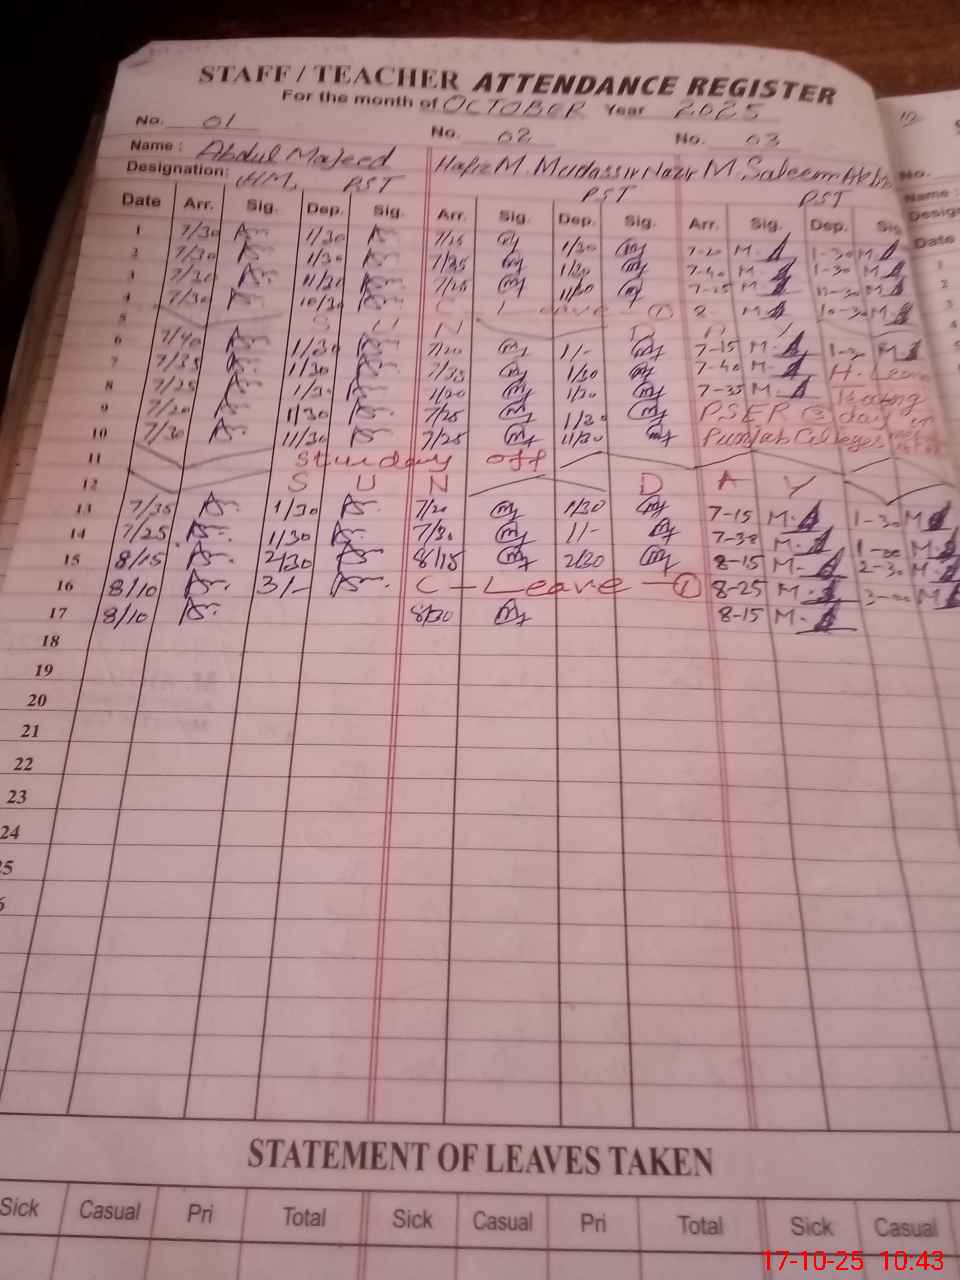 STAFF / TEACHER ATTENDANCE REGISTER
For the month of OCTOBER Year 2025
No. 01 No. 02 No. 03
Name : Abdul Majeed Hafiz M. Mudassir Nazir M. Saleem
Designation: HM, PST PST PST
Date Arr. Sig. Dep. Sig. Arr. Sig. Dep. Sig. Arr. Sig. Dep. Sig
1 7/30 1/30 7/25 1/30 7-20 M. 1-30 M
2 7/30 1/30 7/25 1/30 7-40 M 1-30 M
3 7/30 11/30 7/25 11/30 7-25 M 11-30 M
4 7/30 10/30 C Leave 1 M 10-30 M
5 S U N D A Y
6 7/40 1/30 7/20 1/- 7-15 M. 1-30 M
7 7/35 1/30 7/35 1/30 7-40 M. H. Leave
8 7/25 1/30 1/20 1/20 7-35 M.
9 7/20 1/30 7/25 1/30 PSER 3 day in
10 7/30 11/30 7/25 11/30 Punjab Colleges
11 Sturday off
12 S U N D A Y
13 7/35 1/30 7/20 1/30 7-15 M. 1-30 M
14 7/25 1/30 7/30 1/- 7-38 M. 1-00 M
15 8/15 2/30 8/15 2/30 8-15 M. 2-30 M
16 8/10 3/- C-Leave-1 8-25 M. 3-00 M
17 8/10 8/20 8-15 M.
18
19
20
21
22
23
24
STATEMENT OF LEAVES TAKEN
Sick Casual Pri Total Sick Casual Pri Total Sick Casual
17-10-25 10:43